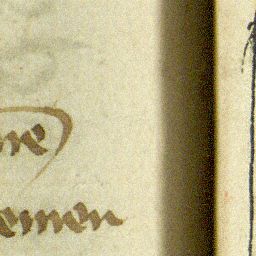 ne
emen